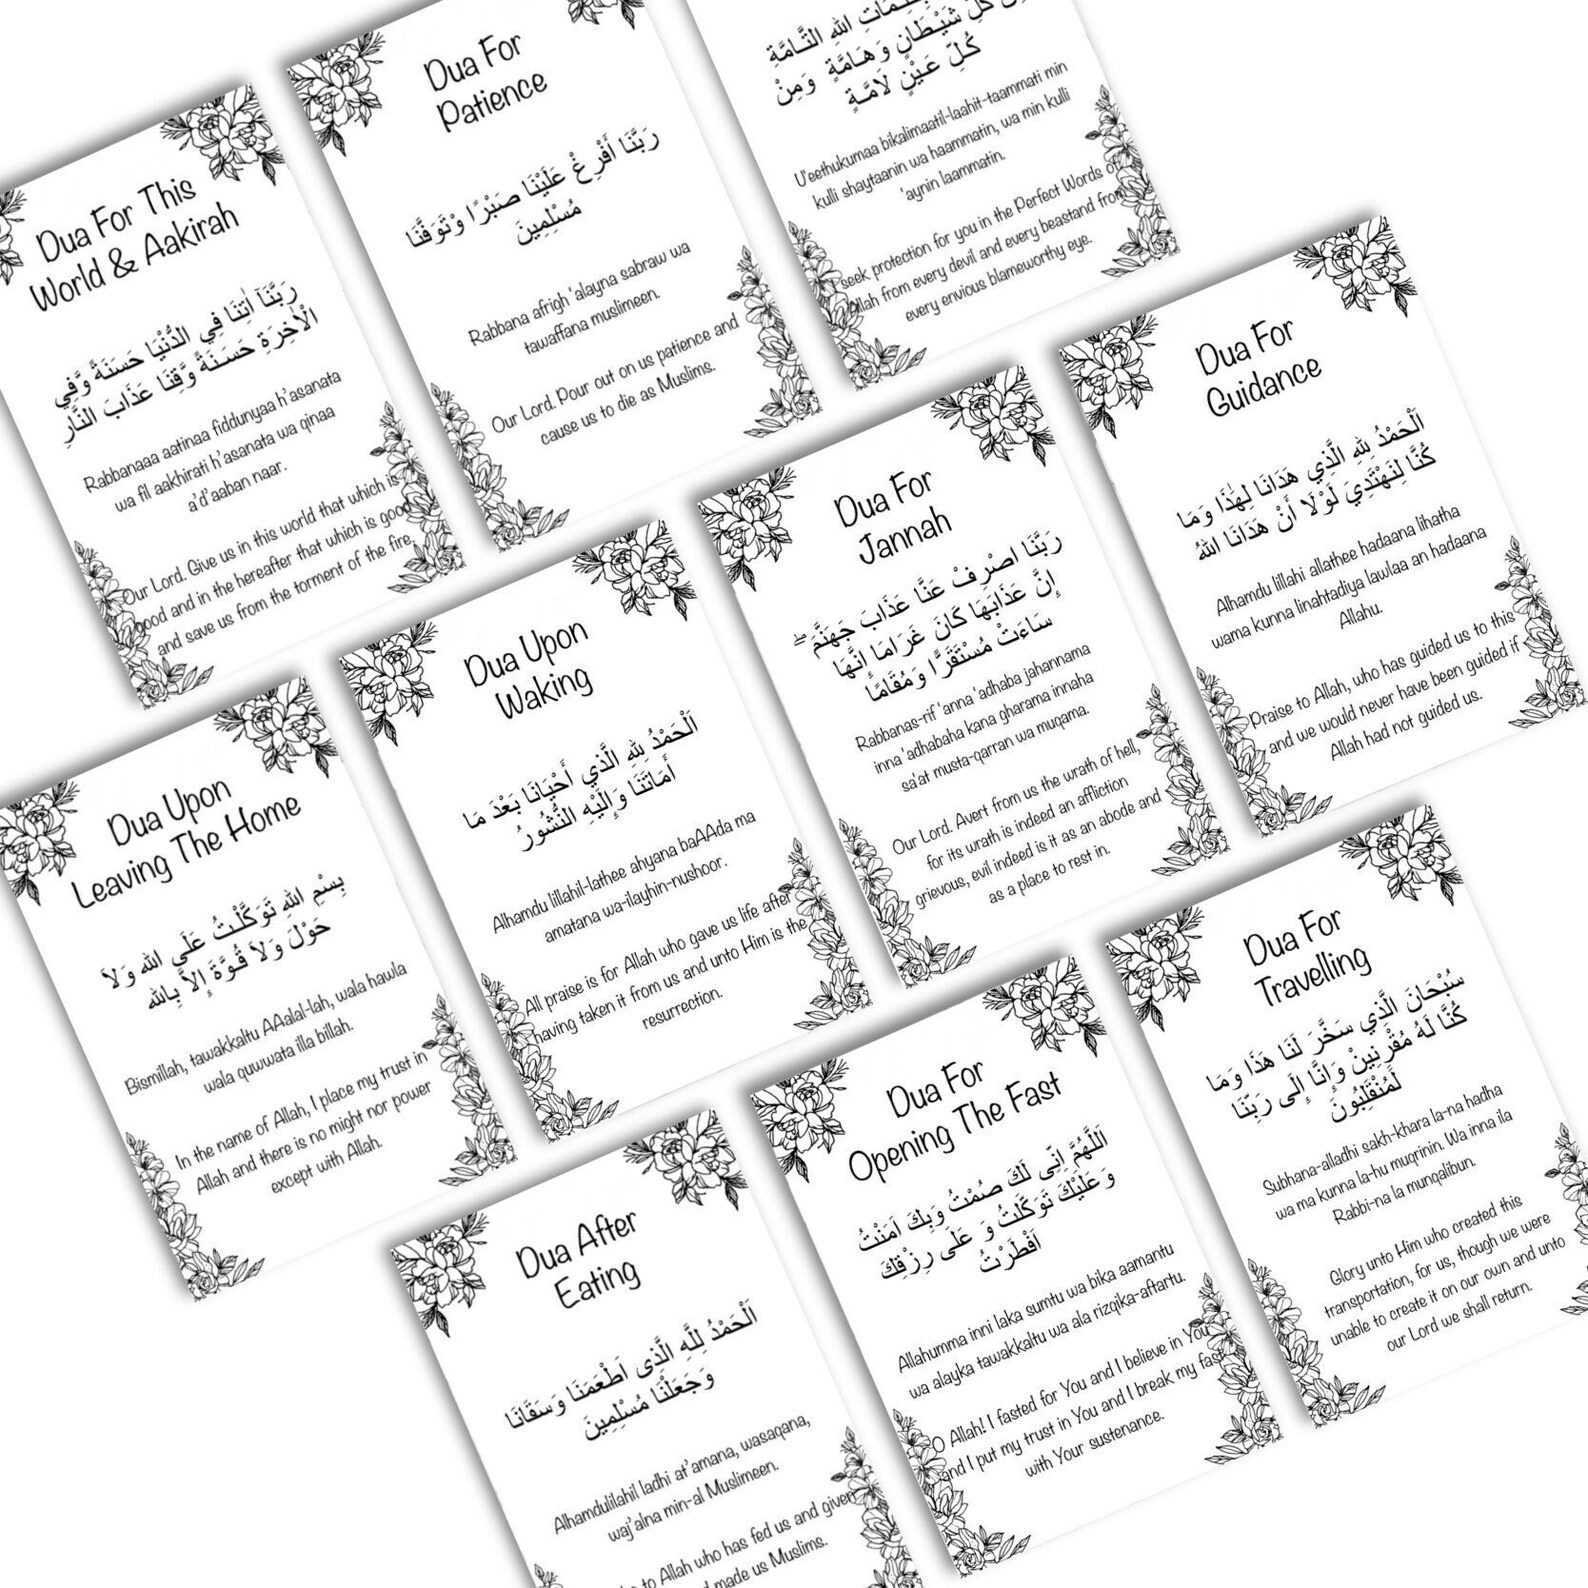 Dua For This
World & Aakirah
رَبَّنَآ اٰتِنَا فِي الدُّنْيَا حَسَنَةً وَّفِي
الْاٰخِرَةِ حَسَنَةً وَّقِنَا عَذَابَ النَّارِ
Rabbanaaa aatinaa fiddunyaa h'asanata
wa fil aakhirati h'asanata wa qinaa
a'd'aaban naar.
Our Lord. Give us in this world that which is
good and in the hereafter that which is good
and save us from the torment of the fire.
Dua For
Patience
رَبَّنَا أَفْرِغْ عَلَيْنَا صَبْرًا وَتَوَفَّنَا
مُسْلِمِينَ
Rabbana afrigh 'alayna sabraw wa
tawaffana muslimeen.
Our Lord. Pour out on us patience and
cause us to die as Muslims.
اللهِ التَّامَّةِ
كُلِّ شَيْطَانٍ وَهَامَّةٍ وَمِنْ
كُلِّ عَيْنٍ لَامَّةٍ
U'eethukumaa bikalimaatil-laahit-taammati min
kulli shaytaanin wa haammatin, wa min kulli
'aynin laammatin.
seek protection for you in the Perfect Words of
Allah from every devil and every beastand from
every envious blameworthy eye.
Dua Upon
Leaving The Home
بِسْمِ اللهِ تَوَكَّلْتُ عَلَى الله وَلاَ
حَوْلَ وَلاَ قُوَّةَ إِلاَّ بِالله
Bismillah, tawakkaltu AAalal-lah, wala hawla
wala quwwata illa billah.
In the name of Allah, I place my trust in
Allah and there is no might nor power
except with Allah.
Dua Upon
Waking
اَلْحَمْدُ لِلهِ الَّذِي أَحْيَانَا بَعْدَ مَا
أَمَاتَنَا وَإِلَيْهِ النُّشُورُ
Alhamdu lillahil-lathee ahyana baAAda ma
amatana wa-ilayhin-nushoor.
All praise is for Allah who gave us life after
having taken it from us and unto Him is the
resurrection.
Dua For
Jannah
رَبَّنَا اصْرِفْ عَنَّا عَذَابَ جَهَنَّمَ ۖ
إِنَّ عَذَابَهَا كَانَ غَرَامًا إِنَّهَا
سَاءَتْ مُسْتَقَرًّا وَمُقَامًا
Rabbanas-rif 'anna 'adhaba jahannama
inna 'adhabaha kana gharama innaha
sa'at musta-qarran wa muqama.
Our Lord. Avert from us the wrath of hell,
for its wrath is indeed an affliction
grievous, evil indeed is it as an abode and
as a place to rest in.
Dua For
Guidance
اَلْحَمْدُ لِلهِ الَّذِي هَدَانَا لِهٰذَا وَمَا
كُنَّا لِنَهْتَدِيَ لَوْلَا أَنْ هَدَانَا اللهُ
Alhamdu lillahi allathee hadaana lihatha
wama kunna linahtadiya lawlaa an hadaana
Allahu.
Praise to Allah, who has guided us to this
and we would never have been guided if
Allah had not guided us.
Dua After
Eating
اَلْحَمْدُ لِلَّهِ الَّذِى اَطْعَمَنَا وَسَقَانَا
وَجَعَلْنَا مُسْلِمِينَ
Alhamdulilahil ladhi at'amana, wasaqana,
waj'alna min-al Muslimeen.
to Allah who has fed us and given
made us Muslims.
Dua For
Opening The Fast
اَللَّهُمَّ اِنِّى لَكَ صُمْتُ وَبِكَ اٰمَنْتُ
وَعَلَيْكَ تَوَكَّلْتُ وَ عَلَى رِزْقِكَ
اَفْطَرْتُ
Allahumma inni laka sumtu wa bika aamantu
wa alayka tawakkaltu wa ala rizqika-aftartu.
O Allah! I fasted for You and I believe in You
and I put my trust in You and I break my fast
with Your sustenance.
Dua For
Travelling
سُبْحَانَ الَّذِي سَخَّرَ لَنَا هَذَا وَمَا
كُنَّا لَهُ مُقْرِنِينَ وَإِنَّا إِلَى رَبِّنَا
لَمُنْقَلِبُونَ
Subhana-alladhi sakh-khara la-na hadha
wa ma kunna la-hu muqrinin. Wa inna ila
Rabbi-na la munqalibun.
Glory unto Him who created this
transportation, for us, though we were
unable to create it on our own and unto
our Lord we shall return.